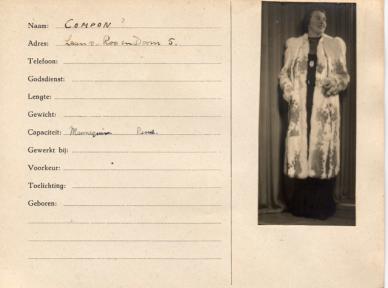 Naam: COMPON ?
Adres: Laan v. Roos en Doorn 5.
Telefoon:
Godsdienst:
Lengte:
Gewicht:
Capaciteit: Mannequin
Gewerkt bij:
Voorkeur:
Toelichting:
Geboren: